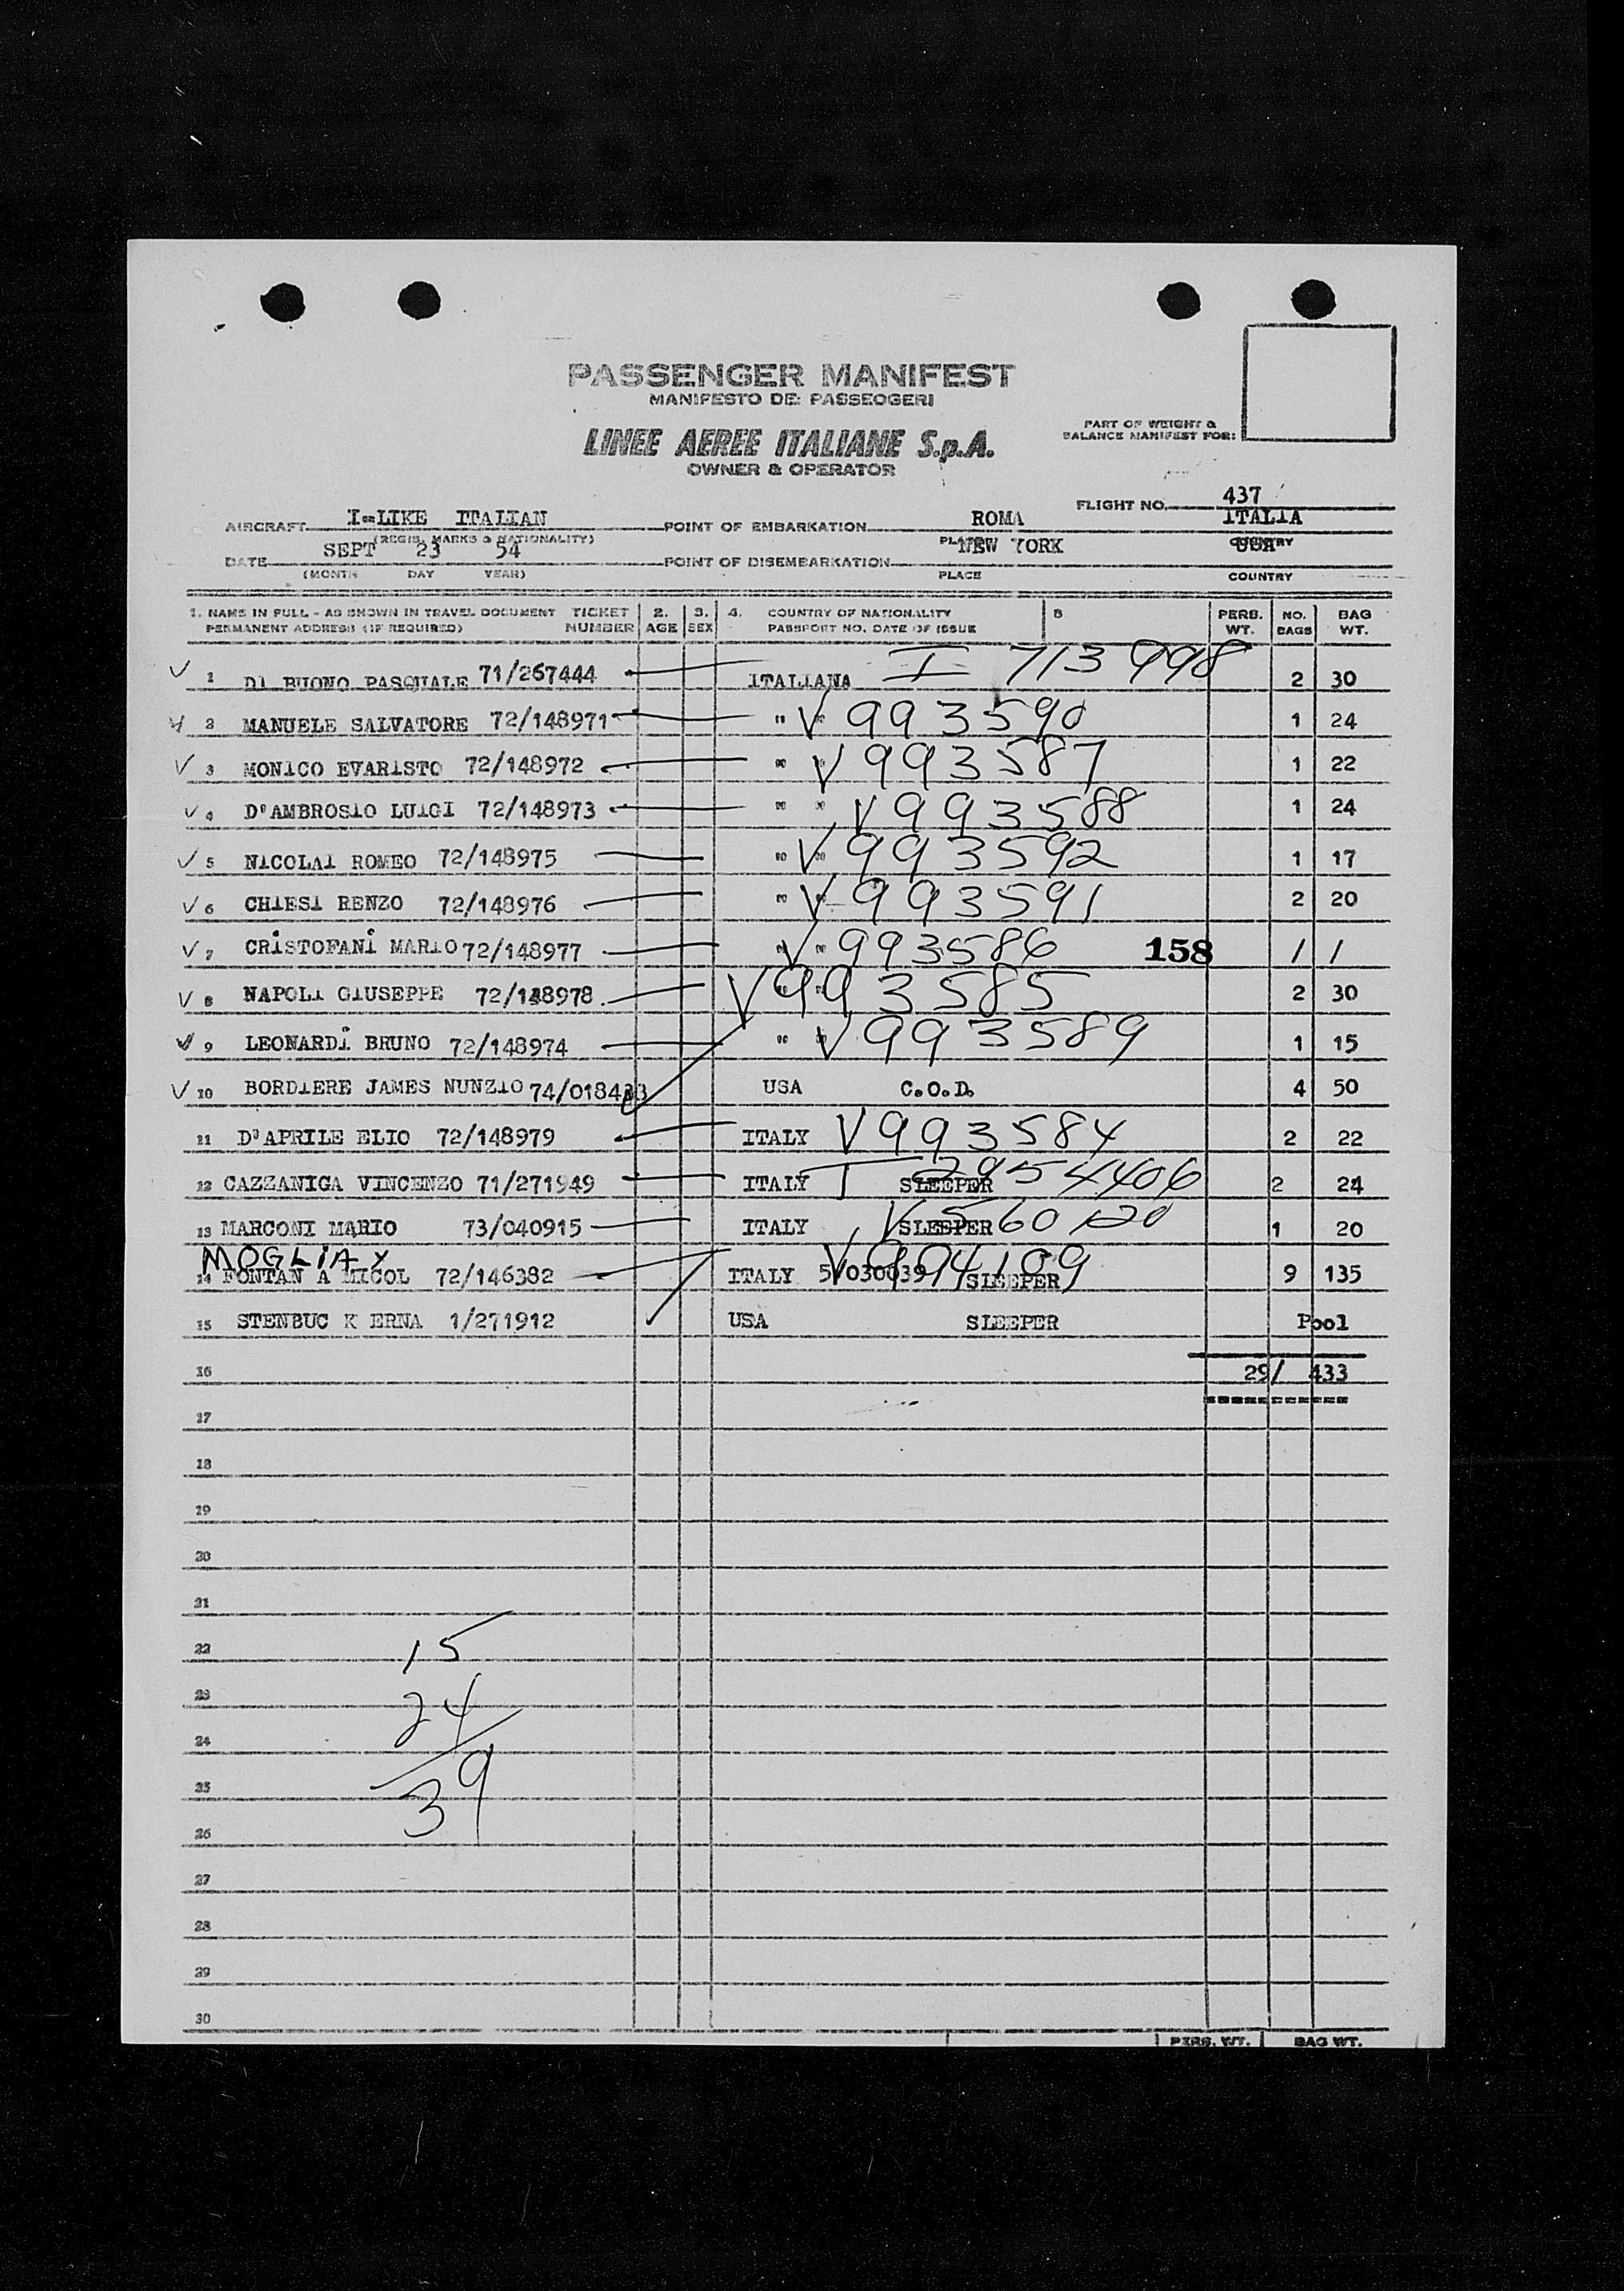 PASSENGER MANIFEST
MANIFESTO DEI PASSEGGERI
LINEE AEREE ITALIANE S.p.A.
OWNER & OPERATOR
PART OF WEIGHT &
BALANCE MANIFEST FOR:
FLIGHT NO. 437
AIRCRAFT I-LIKE ITALIAN POINT OF EMBARKATION ROMA ITALIA
(REGIS. MARKS & NATIONALITY) PLACE COUNTRY
DATE SEPT 23 54 POINT OF DISEMBARKATION NEW YORK USA
(MONTH DAY YEAR) PLACE COUNTRY
1. NAME IN FULL - AS SHOWN IN TRAVEL DOCUMENT TICKET 2. 3. 4. COUNTRY OF NATIONALITY 5 PERS. NO. BAG
PERMANENT ADDRESS (IF REQUIRED) NUMBER AGE SEX PASSPORT NO. DATE OF ISSUE WT. BAGS WT.
1 DI BUONO PASQUALE 71/267444 ITALIANA I 713998 2 30
2 MANUELE SALVATORE 72/148971 " " V 993590 1 24
3 MONICO EVARISTO 72/148972 " " V 993587 1 22
4 D'AMBROSIO LUIGI 72/148973 " " V 993588 1 24
5 NICOLAI ROMEO 72/148975 " " V 993592 1 17
6 CHIESI RENZO 72/148976 " " V 993591 2 20
7 CRISTOFANI MARIO 72/148977 " " V 993586 158 / /
8 NAPOLI GIUSEPPE 72/148978 " " V 993585 2 30
9 LEONARDI BRUNO 72/148974 " " V 993589 1 15
10 BORDIERE JAMES NUNZIO USA C.O.D. 4 50
11 D'APRILE ELIO 72/148979 ITALY V 993584 2 22
12 CAZZANIGA VINCENZO 71/271949 ITALY I 2954406 SLEEPER 2 24
13 MARCONI MARIO 73/040915 ITALY SLEEPER 1 20
MOGLIA X
14 FONTAN A MICOL 72/146382 ITALY 5/030039 V 994109 SLEEPER 9 135
15 STENBUC K ERNA 1/271912 USA SLEEPER Pool
16 29/ 433
17
18
19
20
21
22 15
23 24
24
25 39
26
27
28
29
30
PERS. WT. BAG WT.